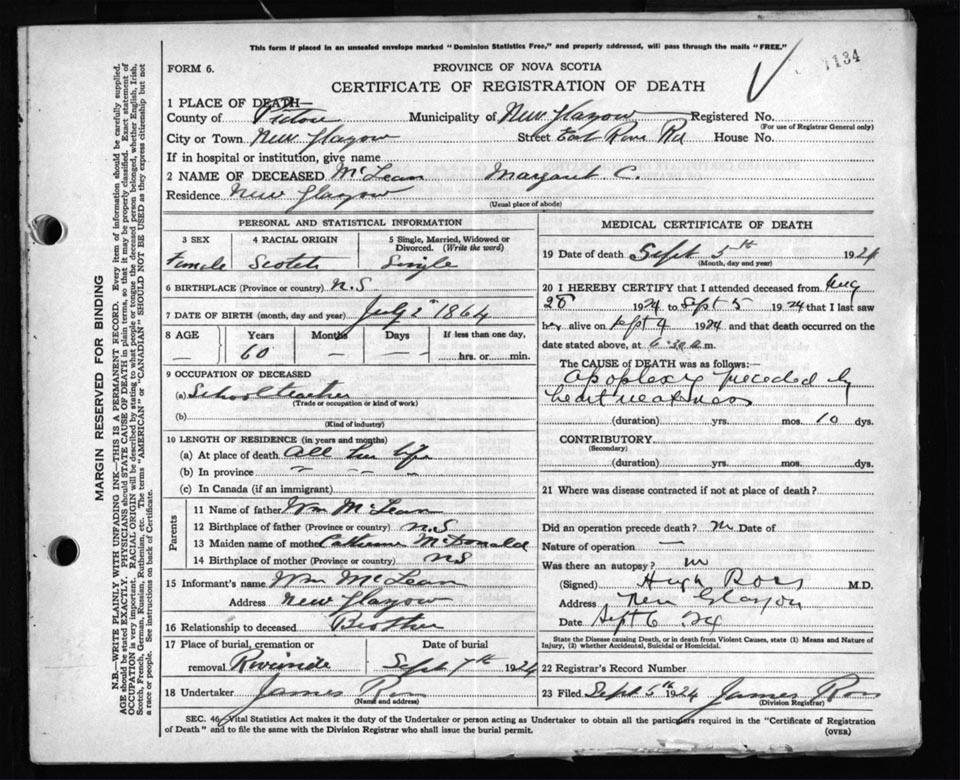 This form if placed in an unsealed envelope marked "Dominion Statistics Free," and properly addressed, will pass through the mails "FREE."
1134
FORM 6.
PROVINCE OF NOVA SCOTIA
CERTIFICATE OF REGISTRATION OF DEATH
1 PLACE OF DEATH—
County of Pictou Municipality of New Glasgow Registered No.
(For use of Registrar General only)
City or Town New Glasgow Street East River Rd House No.
If in hospital or institution, give name
2 NAME OF DECEASED McLean Margaret C.
Residence New Glasgow
(Usual place of abode)
PERSONAL AND STATISTICAL INFORMATION
3 SEX 4 RACIAL ORIGIN 5 Single, Married, Widowed or Divorced. (Write the word)
Female Scotch Single
6 BIRTHPLACE (Province or country) N.S
7 DATE OF BIRTH (month, day and year) July 2 1864
8 AGE Years Months Days If less than one day,
— 60 — — hrs. or min.
9 OCCUPATION OF DECEASED
(a) School teacher
(Trade or occupation or kind of work)
(b)
(Kind of industry)
10 LENGTH OF RESIDENCE (in years and months)
(a) At place of death All her life
(b) In province " — "
(c) In Canada (if an immigrant)
Parents
11 Name of father Wm McLean
12 Birthplace of father (Province or country) N.S
13 Maiden name of mother Catherine McDonald
14 Birthplace of mother (Province or country) NS
15 Informant's name Wm McLean
Address New Glasgow
16 Relationship to deceased Brother
17 Place of burial, cremation or Date of burial
removal Riverside Sept 7th 1924
18 Undertaker James Ross
(Name and address)
MEDICAL CERTIFICATE OF DEATH
19 Date of death Sept 5th 1924
(Month, day and year)
20 I HEREBY CERTIFY that I attended deceased from Aug
28 1924 to Sept 5 1924 that I last saw
her alive on Sept 4 1924 and that death occurred on
date stated above, at 6.30 a.m.
The CAUSE of DEATH was as follows:—
Apoplexy preceded by
heart weakness
(duration) yrs. mos. 10 dys.
CONTRIBUTORY
(Secondary)
(duration) yrs. mos. dys.
21 Where was disease contracted if not at place of death?
Did an operation precede death? no Date of
Nature of operation —
Was there an autopsy? no
(Signed) Hugh Ross M.D.
Address New Glasgow
Date Sept 6 '24
State the Disease causing Death, or in death from Violent Causes, state (1) Means and Nature of
Injury, (2) whether Accidental, Suicidal or Homicidal.
22 Registrar's Record Number
23 Filed Sept 5th 1924 James Ross
(Division Registrar)
SEC. 46, Vital Statistics Act makes it the duty of the Undertaker or person acting as Undertaker to obtain all the particulars required in the "Certificate of Registration
of Death" and to file the same with the Division Registrar who shall issue the burial permit.
(OVER)
MARGIN RESERVED FOR BINDING
N.B.—WRITE PLAINLY WITH UNFADING INK—THIS IS A PERMANENT RECORD. Every item of information should be carefully supplied.
AGE should be stated EXACTLY. PHYSICIANS should STATE CAUSE OF DEATH in plain terms, so that it may be properly classified. Exact statement of
OCCUPATION is very important. RACIAL ORIGIN will be described by stating to what people or tongue the deceased person belonged, whether English, Irish,
Scotch, French, German, Russian, Ruthenian, etc. The terms "AMERICAN" or "CANADIAN" SHOULD NOT BE USED as they express citizenship but not
a race or people. See instructions on back of Certificate.